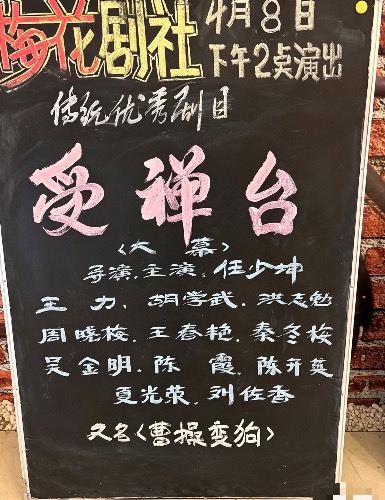 梅花剧社
4月8日
下午2点演出
传统优秀剧目
受禅台
〈大幕〉
导演.主演.任少坤
王力.胡学武.洪志勉
周晓梅.王春艳.秦冬梅
吴金明.陈霞.陈开英
夏光荣.刘佐香
又名〈曹操变狗〉